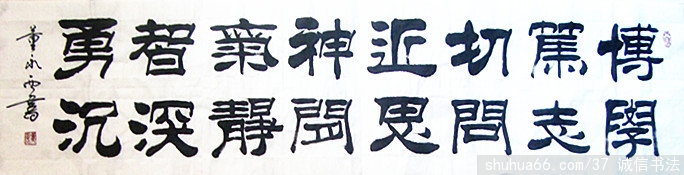 博學
篤志
切問
近思
神閒
氣靜
智深
勇沉
shuhua66.com/37 诚信书法